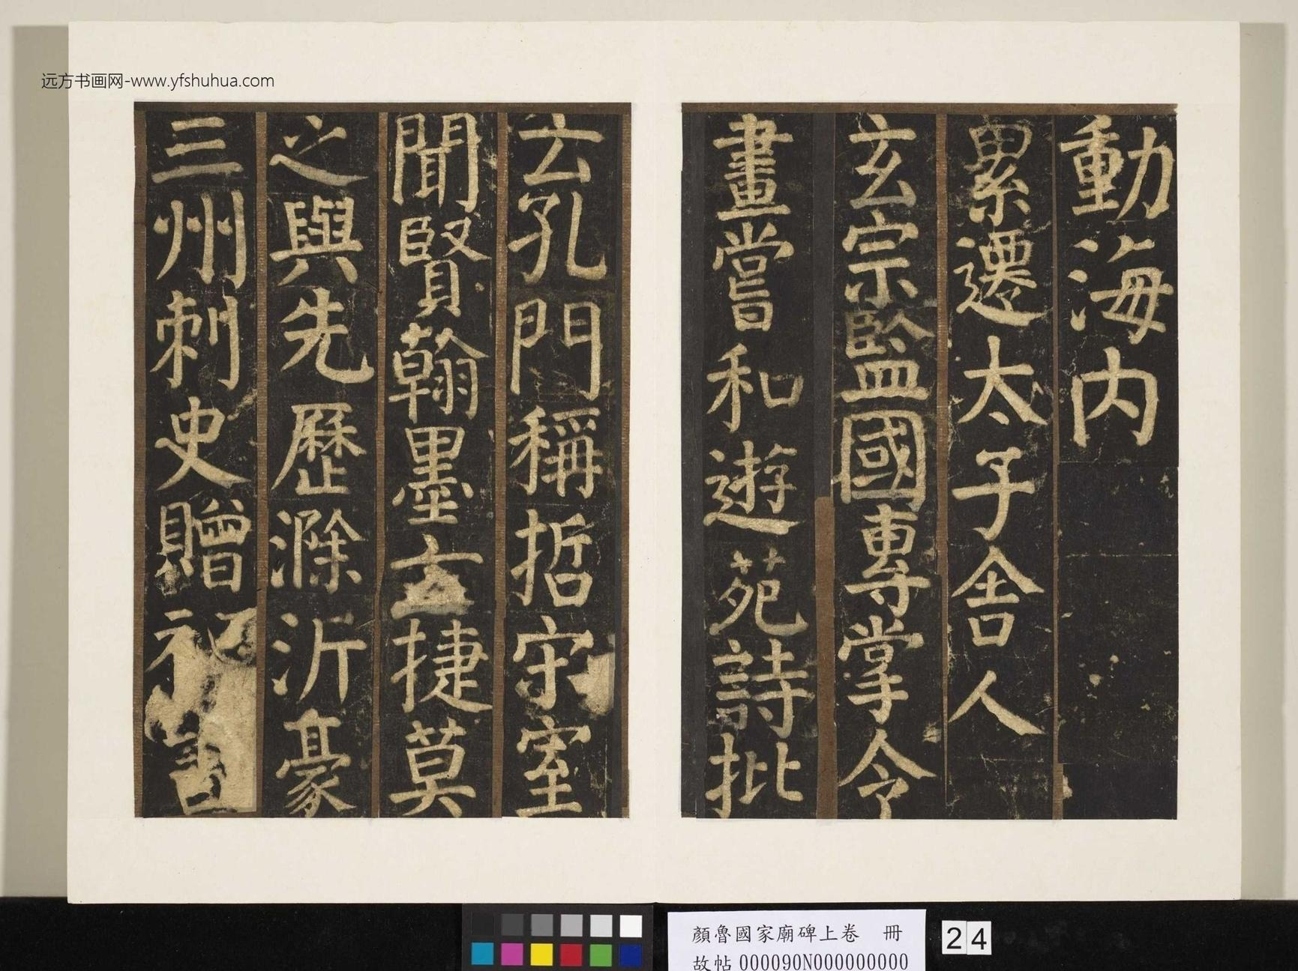 远方书画网-www.yfshuhua.com
動海内
累遷太子舍人
玄宗監國專掌令
畫嘗和遊苑詩批
云孔門稱哲宋室
聞賢翰墨玄捷莫
之與先歷滁沂豪
三州刺史贈祕書
顏魯國家廟碑上卷 冊
故帖 000090N000000000
24